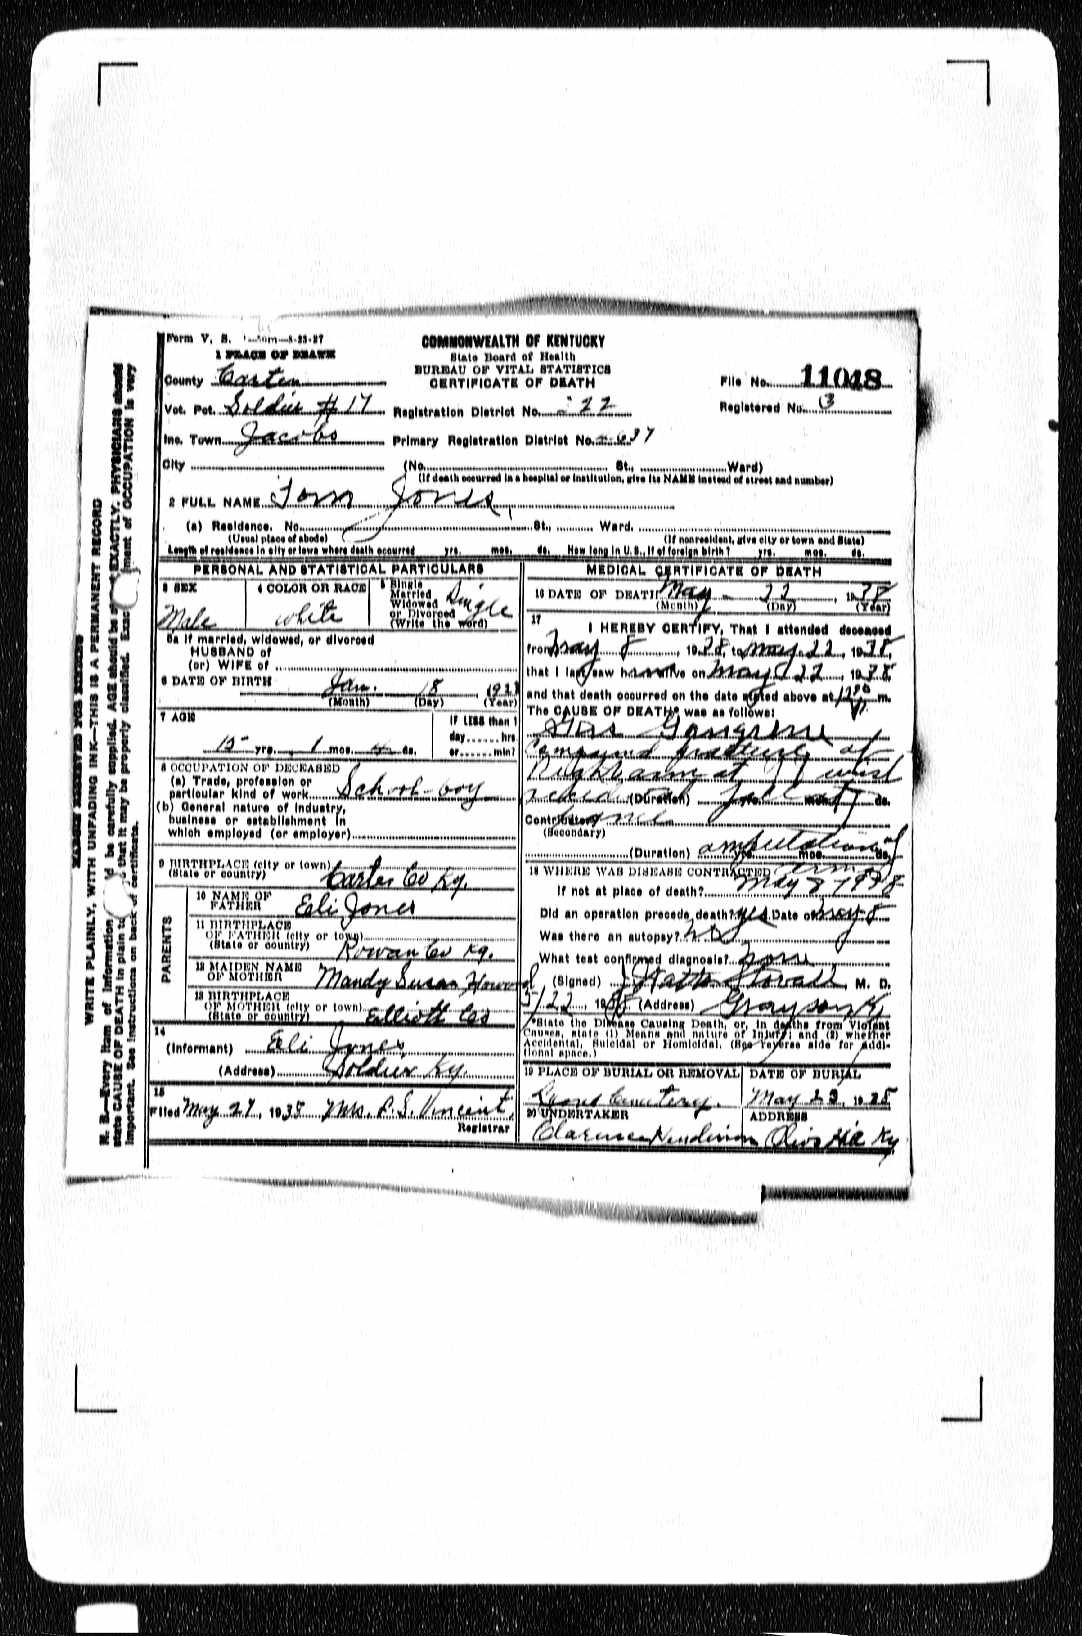 Form V. S. 1-50m-8-23-27
1 PLACE OF DEATH
COMMONWEALTH OF KENTUCKY
State Board of Health
BUREAU OF VITAL STATISTICS
CERTIFICATE OF DEATH
County Carter
File No. 11048
Vot. Pct. Soldier #17
Registration District No. 222
Registered No. 3
Inc. Town Jacobs
Primary Registration District No. 37
City
(No. St., Ward)
(If death occurred in a hospital or institution, give its NAME instead of street and number)
2 FULL NAME Tom Jones
(a) Residence. No. St., Ward.
(Usual place of abode) (If nonresident, give city or town and State)
Length of residence in city or town where death occurred yrs. mos. ds. How long in U. S., if of foreign birth? yrs. mos. ds.
PERSONAL AND STATISTICAL PARTICULARS
3 SEX Male
4 COLOR OR RACE white
5 Single
Married
Widowed
or Divorced
(Write the word) Single
5a If married, widowed, or divorced
HUSBAND of
(or) WIFE of
6 DATE OF BIRTH Jan. 18, 192
(Month) (Day) (Year)
7 AGE
15 yrs. 1 mos. 4 ds.
If LESS than 1
day......hrs.
or......min?
8 OCCUPATION OF DECEASED
(a) Trade, profession or
particular kind of work School-boy
(b) General nature of industry,
business or establishment in
which employed (or employer)
9 BIRTHPLACE (city or town)
(State or country) Carter Co Ky.
PARENTS
10 NAME OF
FATHER Eli Jones
11 BIRTHPLACE
OF FATHER (city or town)
(State or country) Rowan Co Ky.
12 MAIDEN NAME
OF MOTHER Mandy Susan Howard
13 BIRTHPLACE
OF MOTHER (city or town)
(State or country) Elliott Co
14
(Informant) Eli Jones
(Address) Soldier Ky.
15
Filed May 27, 1935 Mrs. P. S. Vincent,
Registrar
MEDICAL CERTIFICATE OF DEATH
16 DATE OF DEATH May 22, 1938
(Month) (Day) (Year)
17
I HEREBY CERTIFY, That I attended deceased
from May 8, 1938, to May 22, 1938,
that I last saw him alive on May 22, 1938,
and that death occurred on the date stated above at 12 m.
The CAUSE OF DEATH* was as follows:
Gas Gangrene
Compound fracture of
Right arm at wrist
accidental fall at
(Duration) yrs. mos. ds.
Contributory home
(Secondary)
(Duration) yrs. mos. ds. amputation of
arm
18 WHERE WAS DISEASE CONTRACTED
If not at place of death? May 8 1938
Did an operation precede death? yes Date of May 8
Was there an autopsy? no
What test confirmed diagnosis? none
(Signed) J. Watts Stovall M. D.
5/22, 1938 (Address) Grayson Ky
*State the Disease Causing Death, or, in deaths from Violent
Causes, state (1) Means and nature of Injury; and (2) whether
Accidental, Suicidal or Homicidal. (See reverse side for addi-
tional space.)
19 PLACE OF BURIAL OR REMOVAL
Cemetery.
DATE OF BURIAL
May 23, 1935
20 UNDERTAKER
Clarence Henderson
ADDRESS
Olive Hill Ky
MARGIN RESERVED FOR BINDING
WRITE PLAINLY, WITH UNFADING INK—THIS IS A PERMANENT RECORD
N. B.—Every item of information should be carefully supplied. AGE should be stated EXACTLY. PHYSICIANS should
state CAUSE OF DEATH in plain terms, so that it may be properly classified. Exact statement of OCCUPATION is very
important. See instructions on back of certificate.